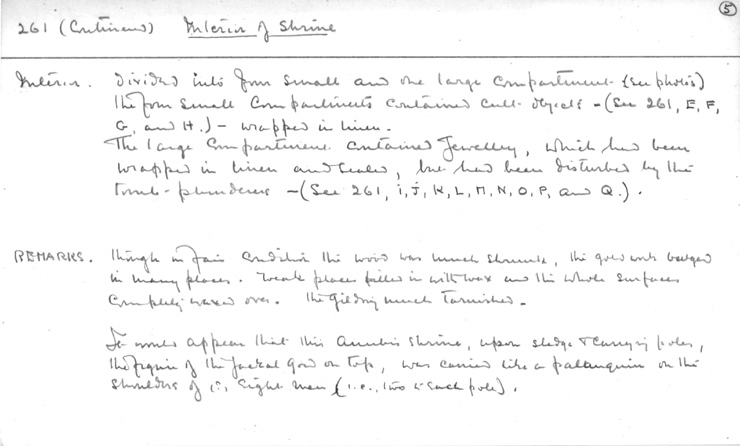 5
261 (Continued) Interior of Shrine
Interior. Divided into four small and one large compartment (see photos)
The four small compartments contained cult-objects - (See 261, E, F,
G, and H.) - wrapped in linen.
The large compartment contained Jewellery, which had been
wrapped in linen and sealed, but had been disturbed by the
tomb-plunderers - (See 261, I, J, K, L, M, N, O, P, and Q.).
REMARKS. Though in fair condition the wood was much shrunk, the gold work bulged
in many places. Weak places filled in with wax and the whole surfaces
completely waxed over. The gilding much tarnished.
It would appear that this Anubis shrine, upon sledge & carrying poles,
the figure of the Jackal God on top, was carried like a palanquin on the
shoulders of eight men (i.e., two to each pole).